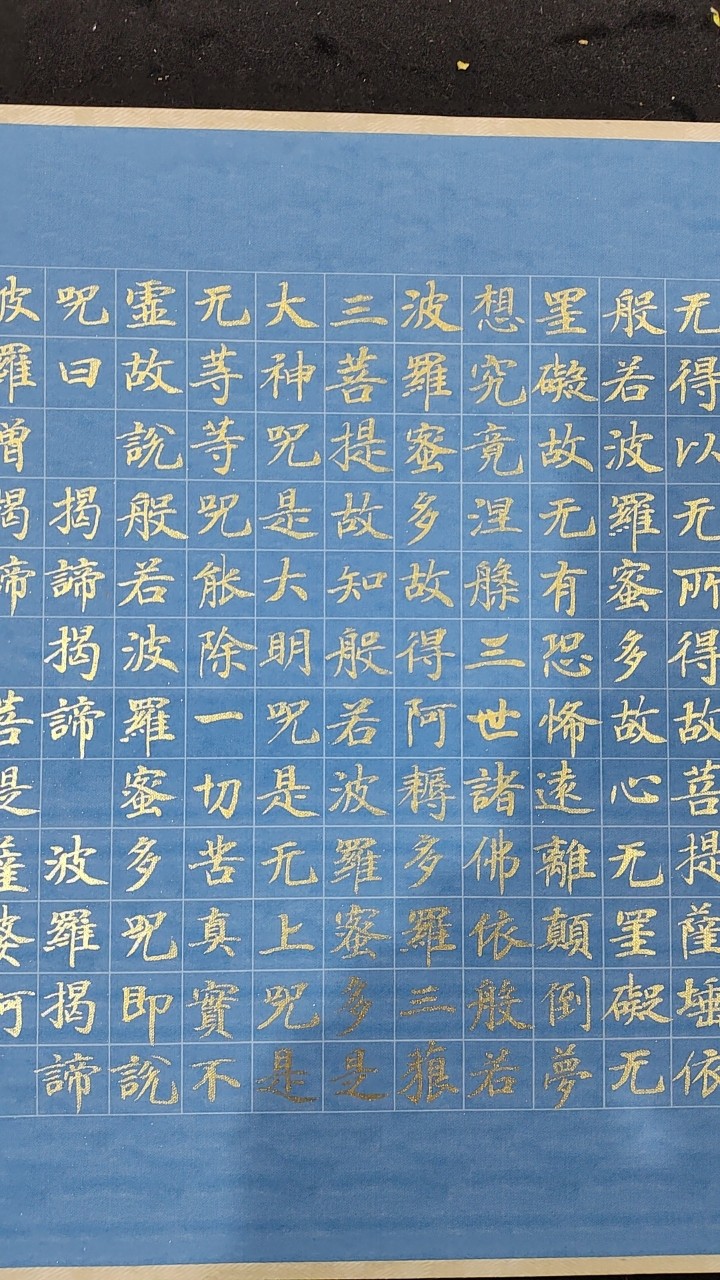 无得以无所得故菩提薩埵依
般若波羅蜜多故心无罣礙无
罣礙故无有恐怖遠離顛倒夢
想究竟涅槃三世諸佛依般若
波羅蜜多故得阿耨多羅三藐
三菩提故知般若波羅蜜多是
大神咒是大明咒是无上咒是
无等等咒能除一切苦真實不
虛故說般若波羅蜜多咒即說
咒曰 揭諦揭諦 波羅揭諦
波羅僧揭諦 菩提薩婆訶